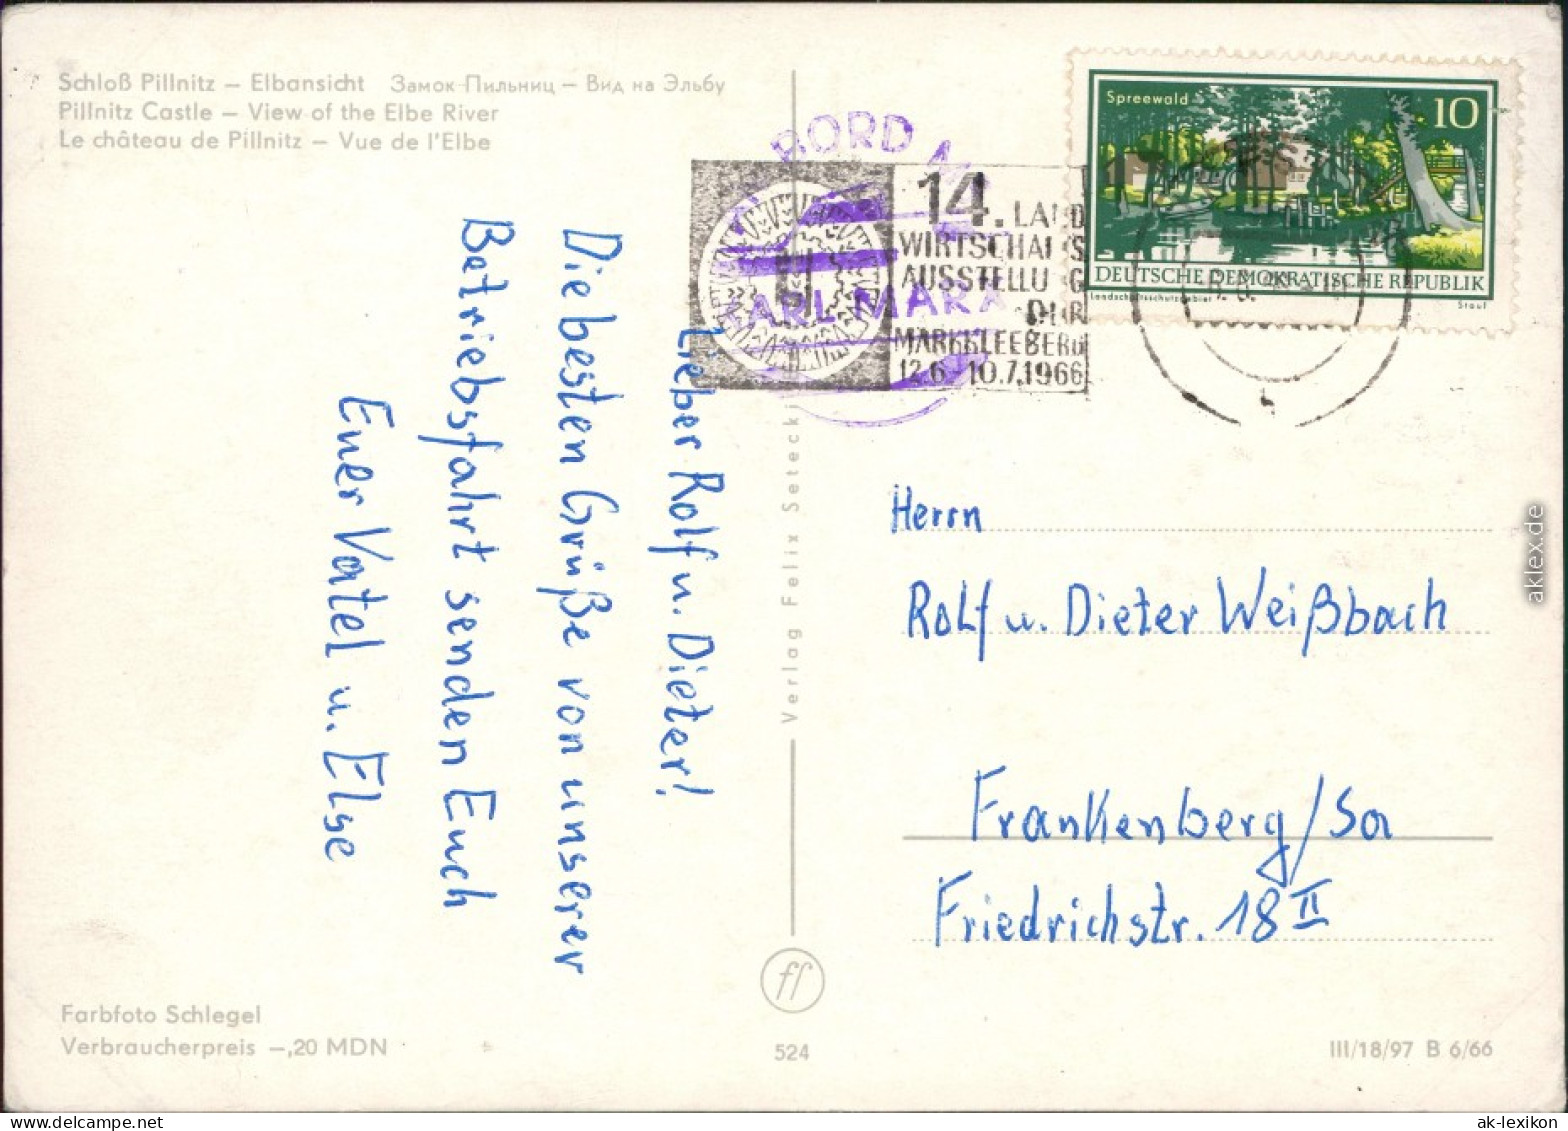 Schloß Pillnitz – Elbansicht Замок Пильниц – Вид на Эльбу
Pillnitz Castle – View of the Elbe River
Le château de Pillnitz – Vue de l'Elbe
BORD
KARL MARX
14. LAND
WIRTSCHAFTS
AUSSTELLUNG
DER
MARKKLEEBERG
12.6.-10.7.1966
Spreewald
10
DEUTSCHE DEMOKRATISCHE REPUBLIK
Landschaftsschutzgebiet
Stauf
Lieber Rolf u. Dieter!
Die besten Grüße von unserer
Betriebsfahrt senden Euch
Euer Vatel u. Else
Verlag Felix Setecki
Herrn
Rolf u. Dieter Weißbach
Frankenberg/Sa
Friedrichstr. 18 II
Farbfoto Schlegel
Verbraucherpreis –,20 MDN
524
III/18/97 B 6/66
aklex.de
ak-lexikon